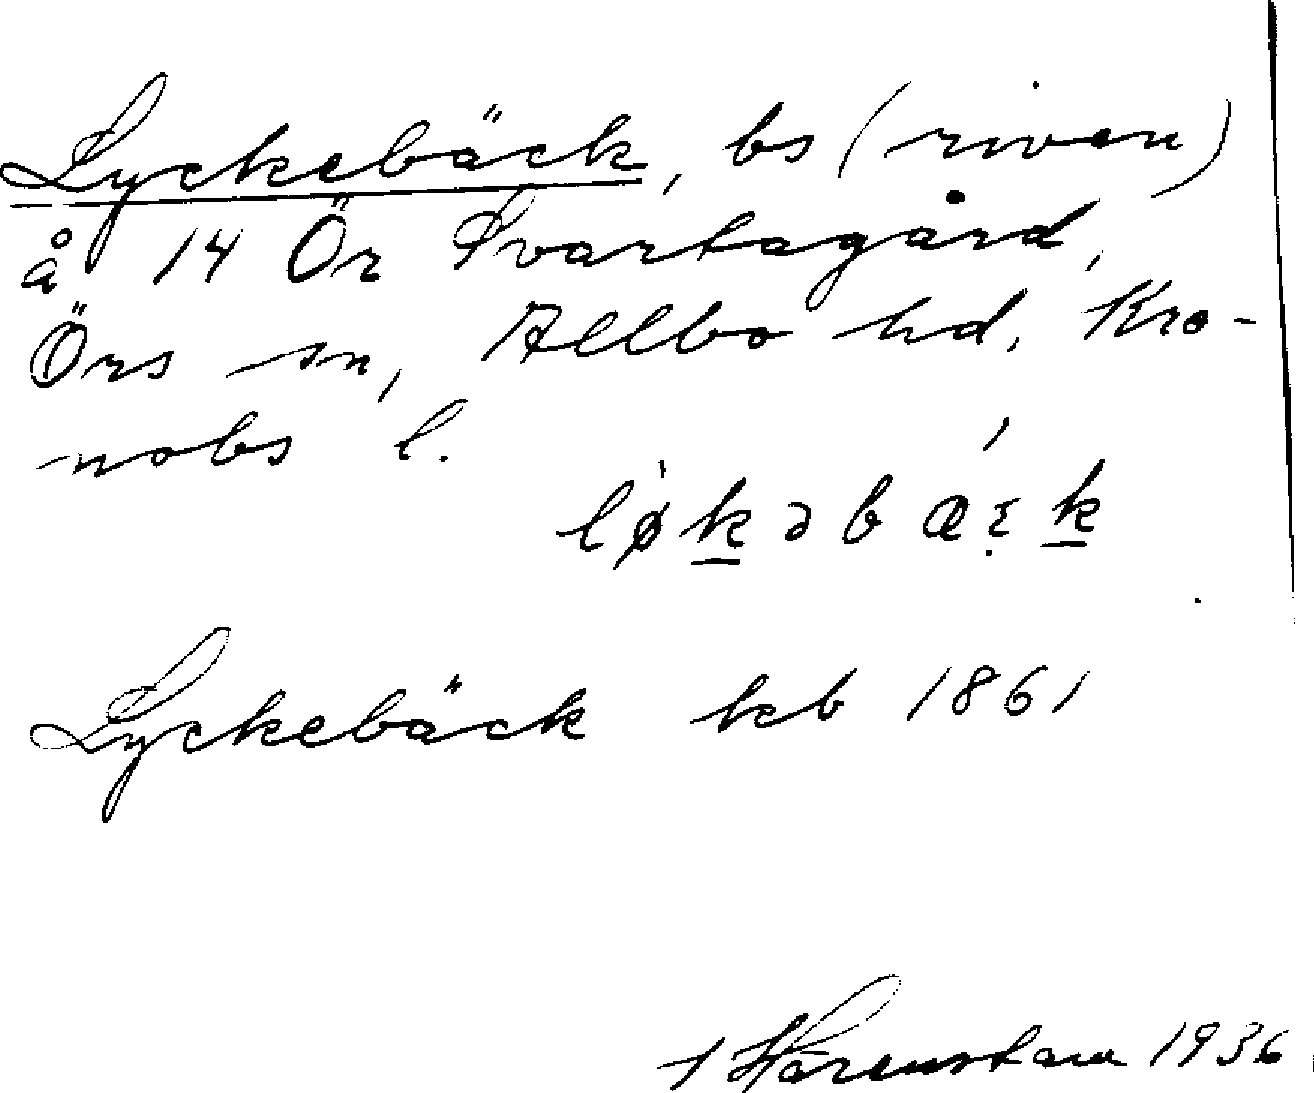 Lyckebäck, bs (riven)
å 14 Ör Svartagård,
Örs sn, Allbo hd, Kro-
nobs l.
lø̍kəbǽk
Lyckebäck kb 1861
Härenstam 1936